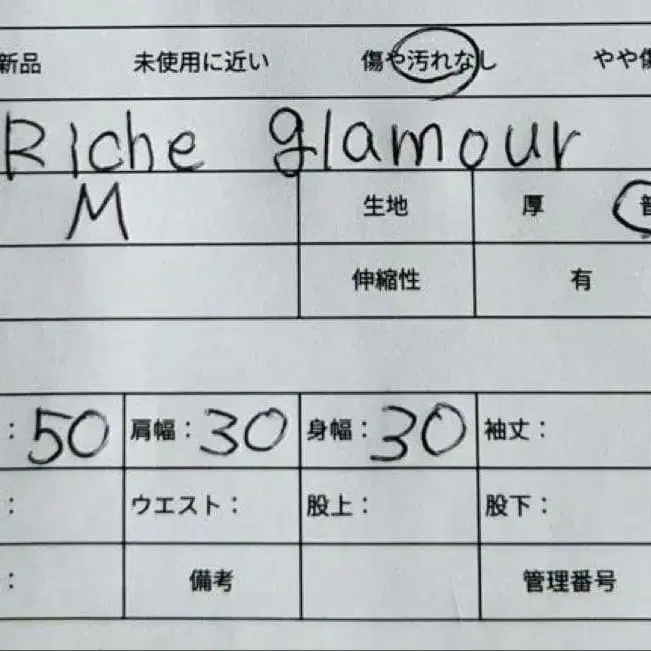 新品 未使用に近い 傷や汚れなし やや傷
Riche glamour
M 生地 厚 普
伸縮性 有
: 50 肩幅: 30 身幅: 30 袖丈:
: ウエスト: 股上: 股下:
: 備考 管理番号